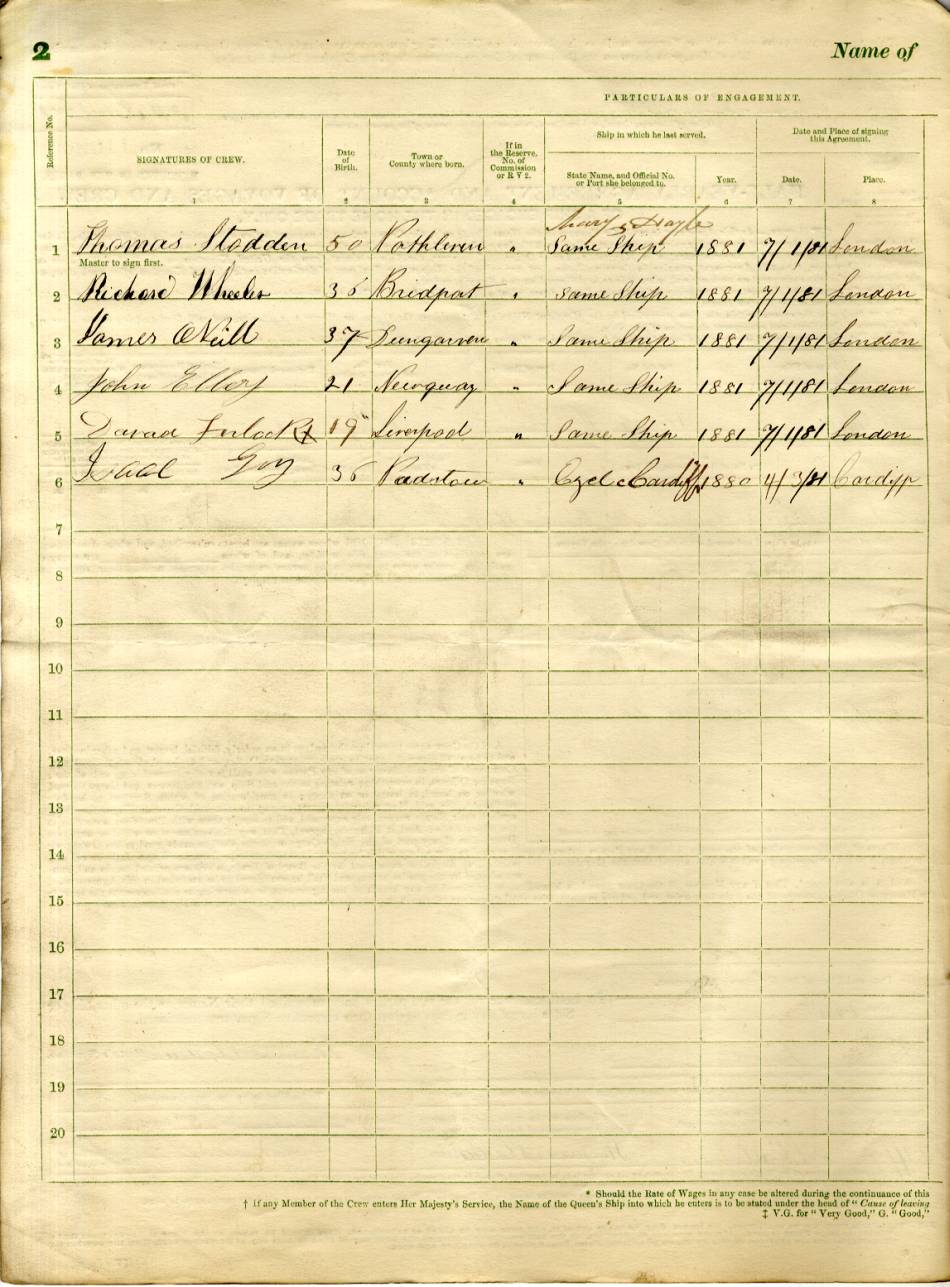 2 Name of
PARTICULARS OF ENGAGEMENT.
Reference No.
SIGNATURES OF CREW.
Date of Birth.
Town or County where born.
If in the Reserve, No. of Commission or R V 2.
Ship in which he last served.
Date and Place of signing this Agreement.
State Name, and Official No. or Port she belonged to.
Year.
Date.
Place.
1 2 3 4 5 6 7 8
Mary Hayle
1 Thomas Stodden 50 Porthleven " Same Ship 1881 7/1/81 London
Master to sign first.
2 Richard Wheeler 36 Bridport " same Ship 1881 7/1/81 London
3 James O'Neill 37 Dungarven " Same Ship 1881 7/1/81 London
4 John Ellery 21 Newquay " Same Ship 1881 7/1/81 London
5 David 19 Liverpool " Same Ship 1881 7/1/81 London
6 Isaac Guy 36 Padstow " Cardiff 1880 4/3/81 Cardiff
7
8
9
10
11
12
13
14
15
16
17
18
19
20
* Should the Rate of Wages in any case be altered during the continuance of this
† If any Member of the Crew enters Her Majesty's Service, the Name of the Queen's Ship into which he enters is to be stated under the head of " Cause of leaving
‡ V.G. for " Very Good," G. " Good,"